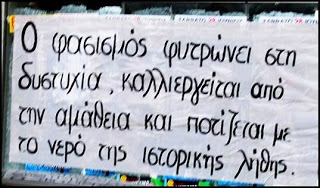 Ο φασισμός φυτρώνει στη
δυστυχία, καλλιεργείται από
την αμάθεια και ποτίζεται με
το νερό της ιστορικής λήθης.